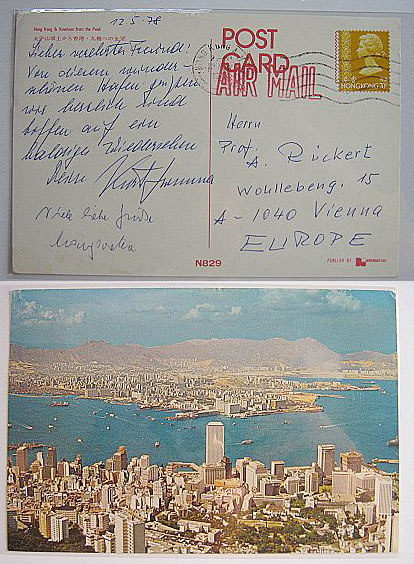 12.5.78
Hong Kong & Kowloon from the Peak
太平山頂上から香港・九龍への全望
Lieber verehrter Freund!
Von diesem wunder-
schönen Hafen grüßen
wir herzlich und
hoffen auf ein
baldiges Wiedersehen
Viele liebe Grüße
POST
CARD
AIR MAIL
HONG KONG
Herrn
Prof.
A. Rückert
Wohllebeng. 15
A-1040 Vienna
EUROPE
N829
PUBLISH BY